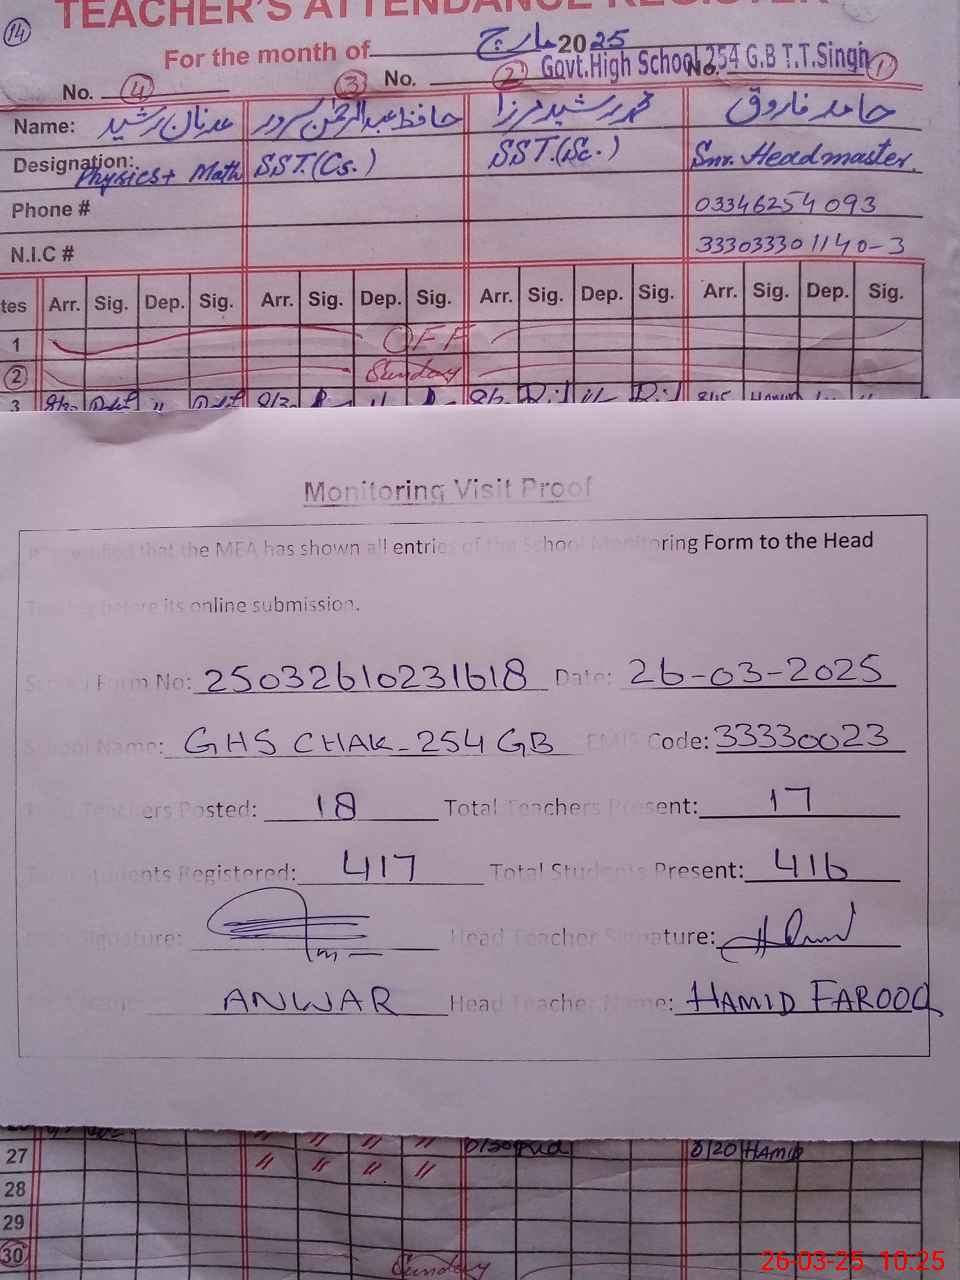 14
TEACHER'S ATTENDANCE REGISTER
For the month of مارچ 2025
Govt. High School 254 G.B T.T.Singh
No. 4 3 No. 2 No. 1
Name: عدنان رشید حافظ عبدالرحمٰن سرور محمد رشید مرزا حامد فاروق
Designation: Physics + Math SST.(Cs.) SST.(Sc.) Snr. Headmaster.
Phone # 03346254093
N.I.C # 333033301140-3
tes Arr. Sig. Dep. Sig. Arr. Sig. Dep. Sig. Arr. Sig. Dep. Sig. Arr. Sig. Dep. Sig.
1 OFF
2 Sunday
3
Monitoring Visit Proof
It is certified that the MEA has shown all entries of the School Monitoring Form to the Head
Teacher before its online submission.
School Form No: 25032610231618 Date: 26-03-2025
School Name: GHS CHAK-254 GB EMIS Code: 33330023
Total Teachers Posted: 18 Total Teachers Present: 17
Total Students Registered: 417 Total Students Present: 416
Signature: Head Teacher Signature:
ANWAR Head Teacher Name: HAMID FAROOQ
27 8/20 Hamid
28
29
30 Sunday
26-03-25 10:25